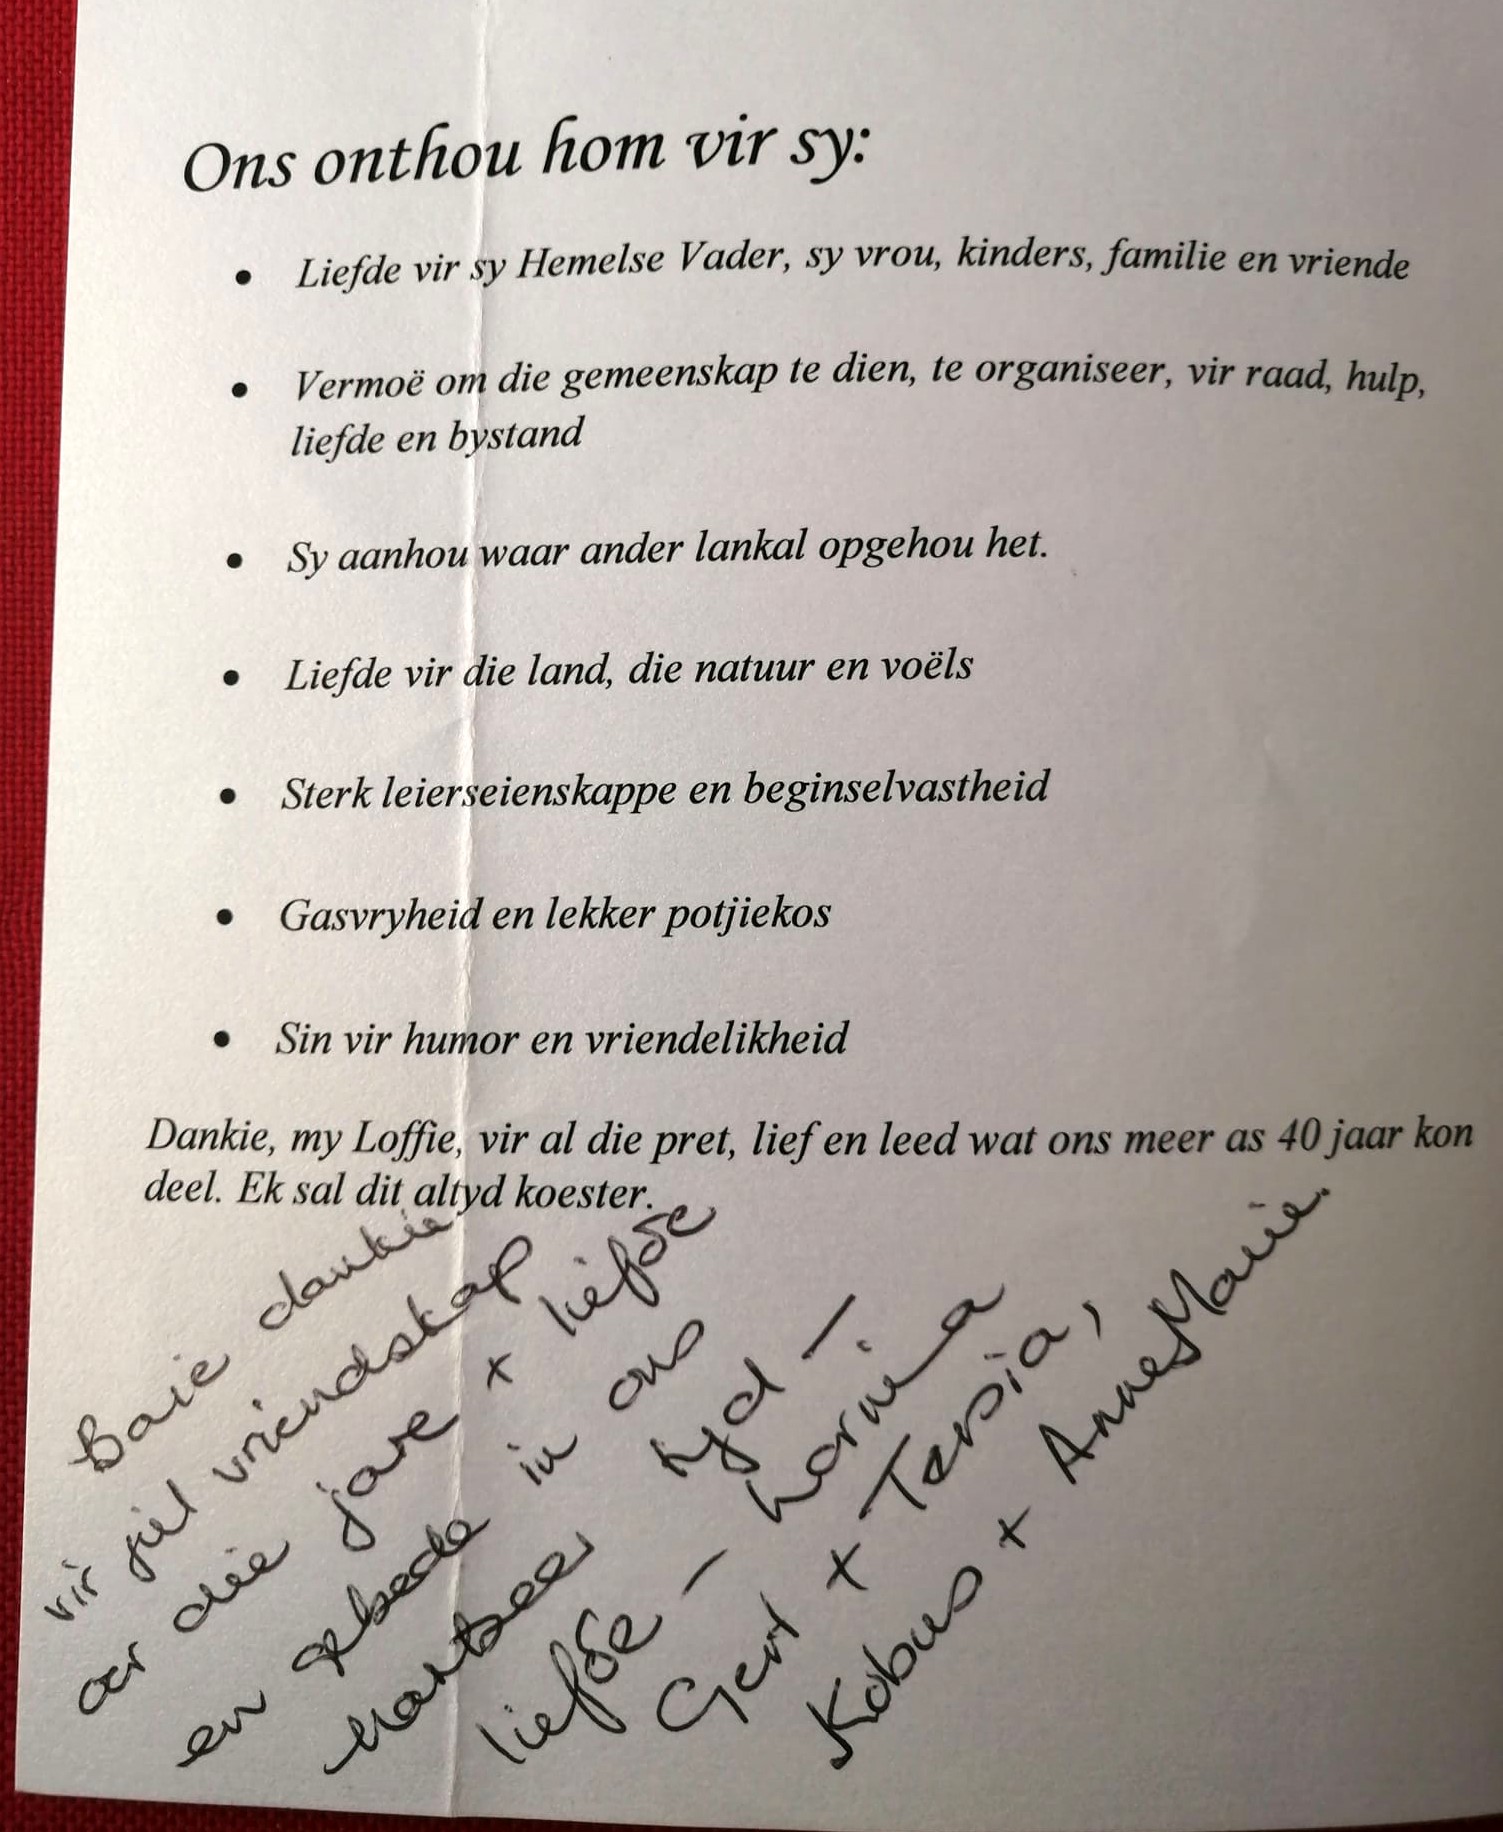 Ons onthou hom vir sy:
• Liefde vir sy Hemelse Vader, sy vrou, kinders, familie en vriende
• Vermoë om die gemeenskap te dien, te organiseer, vir raad, hulp,
liefde en bystand
• Sy aanhou waar ander lankal opgehou het.
• Liefde vir die land, die natuur en voëls
• Sterk leierseienskappe en beginselvastheid
• Gasvryheid en lekker potjiekos
• Sin vir humor en vriendelikheid
Dankie, my Loffie, vir al die pret, lief en leed wat ons meer as 40 jaar kon
deel. Ek sal dit altyd koester.
Baie dankie
vir jul vriendskap
oor die jare + liefde
en gebede in ons
hartseer tyd –
liefde –
Gert + Tersia,
Kobus + AnneMarie.